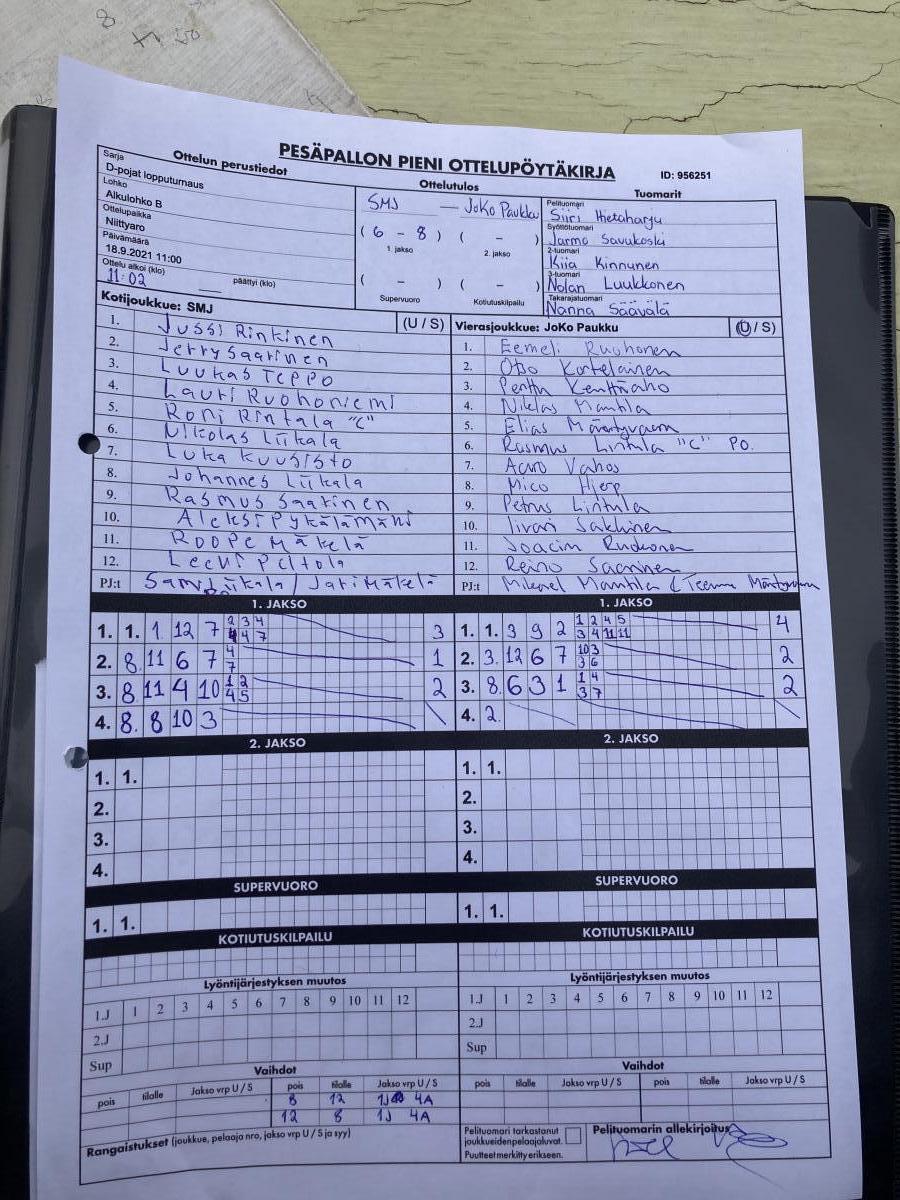 PESÄPALLON PIENI OTTELUPÖYTÄKIRJA
ID: 956251
Ottelun perustiedot
Sarja
D-pojat lopputurnaus
Lohko
Alkulohko B
Ottelupaikka
Niittyaro
Päivämäärä
18.9.2021 11:00
Ottelu alkoi (klo) päättyi (klo)
11:02
Ottelutulos
SMJ — JoKo Paukku
( 6 - 8 ) ( - )
1. jakso 2. jakso
( - ) ( - )
Supervuoro Kotiutuskilpailu
Tuomarit
Pelituomari
Siiri Hietaharju
Syöttötuomari
Jarmo Savukoski
2-tuomari
Kiia Kinnunen
3-tuomari
Nolan Luukkonen
Takarajatuomari
Nanna Säävälä
Kotijoukkue: SMJ (U / S)
1. Jussi Rinkinen
2. Jerry Saarinen
3. Luukas Teppo
4. Lauri Ruohoniemi
5. Roni Rintala "C"
6. Nikolas Liikala
7. Luka Kuusisto
8. Johannes Liikala
9. Rasmus Saarinen
10. Aleksi Pykälämäki
11. Roope Mäkelä
12. Leevi Peltola
PJ:t Sami Liikala / Jari Mäkelä
Vierasjoukkue: JoKo Paukku (U / S)
1. Eemeli Ruohonen
2. Otso Kortelainen
3. Penttu Kenttäaho
4. Niklas Mantila
5. Elias
6. Rasmus Lintula "C" PO.
7. Aaro Vahos
8. Mico Hjerp
9. Petrus Lintula
10. Iivari Sakkinen
11. Joacim Ruokonen
12. Reino Saarinen
PJ:t Mikael Mantila & Teemu
1. JAKSO
1. 1. 1 12 7 2 3 4 3
4 4 7
2. 8. 11 6 7 4 1
7
3. 8 11 4 10 1 2 2
4 5
4. 8. 8 10 3
1. JAKSO
1. 1. 3 9 2 1 2 4 5 4
3 4 11 11
2. 3. 12 6 7 10 3 2
3 6
3. 8. 6 3 1 1 4 2
3 7
4. 2.
2. JAKSO
1. 1.
2.
3.
4.
2. JAKSO
1. 1.
2.
3.
4.
SUPERVUORO
1. 1.
SUPERVUORO
1. 1.
KOTIUTUSKILPAILU
KOTIUTUSKILPAILU
Lyöntijärjestyksen muutos
1.J 1 2 3 4 5 6 7 8 9 10 11 12
2.J
Sup
Lyöntijärjestyksen muutos
1.J 1 2 3 4 5 6 7 8 9 10 11 12
2.J
Sup
Vaihdot
pois tilalle Jakso vrp U / S pois tilalle Jakso vrp U / S
8 12 1J 4A
12 8 1J 4A
Vaihdot
pois tilalle Jakso vrp U / S pois tilalle Jakso vrp U / S
Rangaistukset (joukkue, pelaaja nro, jakso vrp U / S ja syy)
Pelituomari tarkastanut
joukkueidenpelaajaluvat.
Puutteet merkitty erikseen.
Pelituomarin allekirjoitus